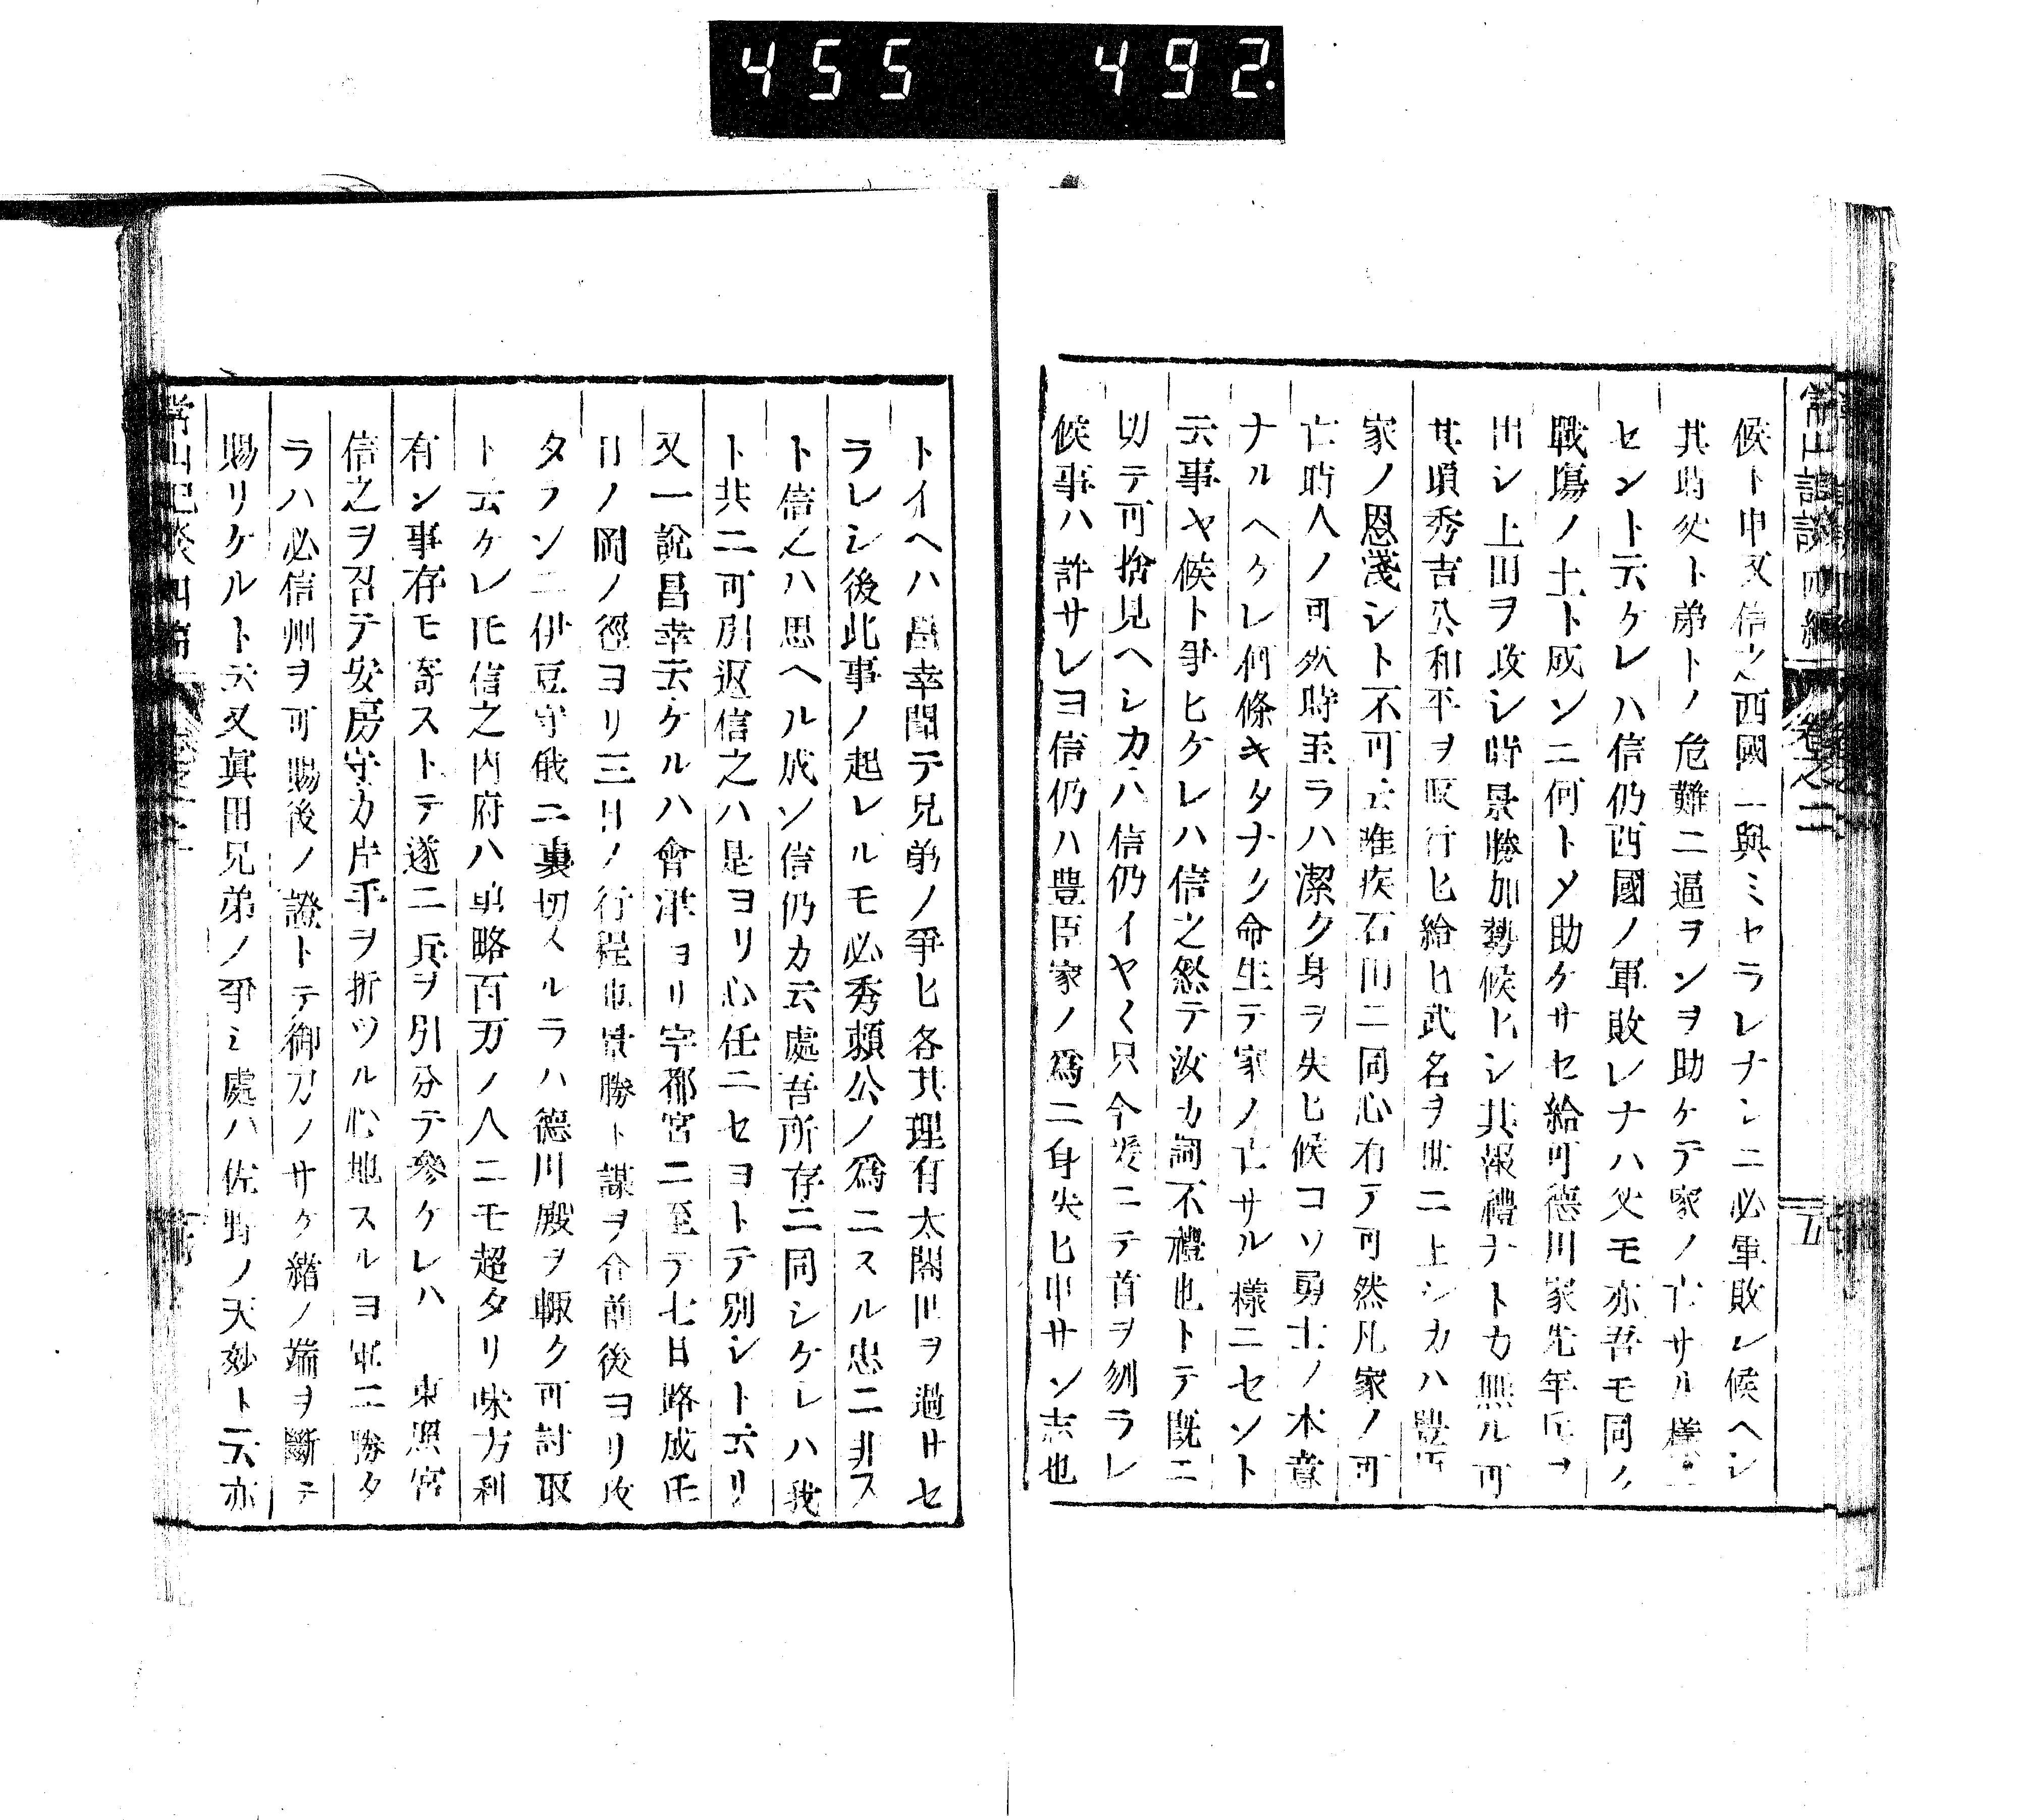 455 492.
候ト申又信之西國ニ與ミセラレナンニ必軍敗レ候ヘシ
其時父ト弟トノ危難ニ逼ヲンヲ助ケテ家ノ亡サル樣ニ
セント云ケレハ信仍西國ノ軍敗レナハ父モ亦吾モ同ク
戰塲ノ土ト成ンニ何トメ助ケサセ給可德川家先年兵ヲ
出シ上田ヲ攻シ時景勝加勢候ヒシ其報禮ナトカ無ル可
其頃秀吉公和平ヲ取行ヒ給ヒ武名ヲ世ニ上シカハ豐臣
家ノ恩淺シト不可云唯疾石田ニ同心有テ可然凡家ノ可
亡時人ノ可死時至ラハ潔ク身ヲ失ヒ候コソ勇士ノ本意
ナルヘケレ何條キタナク命生テ家ノ亡サル樣ニセント
云事ヤ候ト爭ヒケレハ信之怒テ汝カ詞不禮也トテ既ニ
切テ可捨見ヘシカハ信仍イヤ〱只今爰ニテ首ヲ刎ラレ
候事ハ許サレヨ信仍ハ豊臣家ノ爲ニ身失ヒ申サン志也
トイヘハ昌幸聞テ兄弟ノ爭ヒ各其理有太閤世ヲ過サセ
ラレシ後此事ノ起レルモ必秀頼公ノ爲ニスル忠ニ非ス
ト信之ハ思ヘル成ン信仍カ云處吾所存ニ同シケレハ我
ト共ニ可引返信之ハ是ヨリ心任ニセヨトテ別シト云リ
又一說昌幸云ケルハ會津ヨリ宇都宮ニ至テ七日路成圧
日ノ岡ノ徑ヨリ三日ノ行程也景勝ト謀ヲ合前後ヨリ攻
タランニ伊豆守俄ニ裏切スルラハ德川殿ヲ輙ク可討取
ト云ケレ圧信之內府ハ軍略百万ノ人ニモ超タリ味方利
有ン事存モ寄ストテ遂ニ兵ヲ引分テ參ケレハ　東照宮
信之ヲ召テ安房守カ片手ヲ折ツル心地スルヨ軍ニ勝タ
ラハ必信州ヲ可賜後ノ證トテ御刀ノサケ緒ノ端ヲ斷テ
賜リケルト云又眞田兄弟ノ爭シ處ハ佐野ノ天妙ト云亦